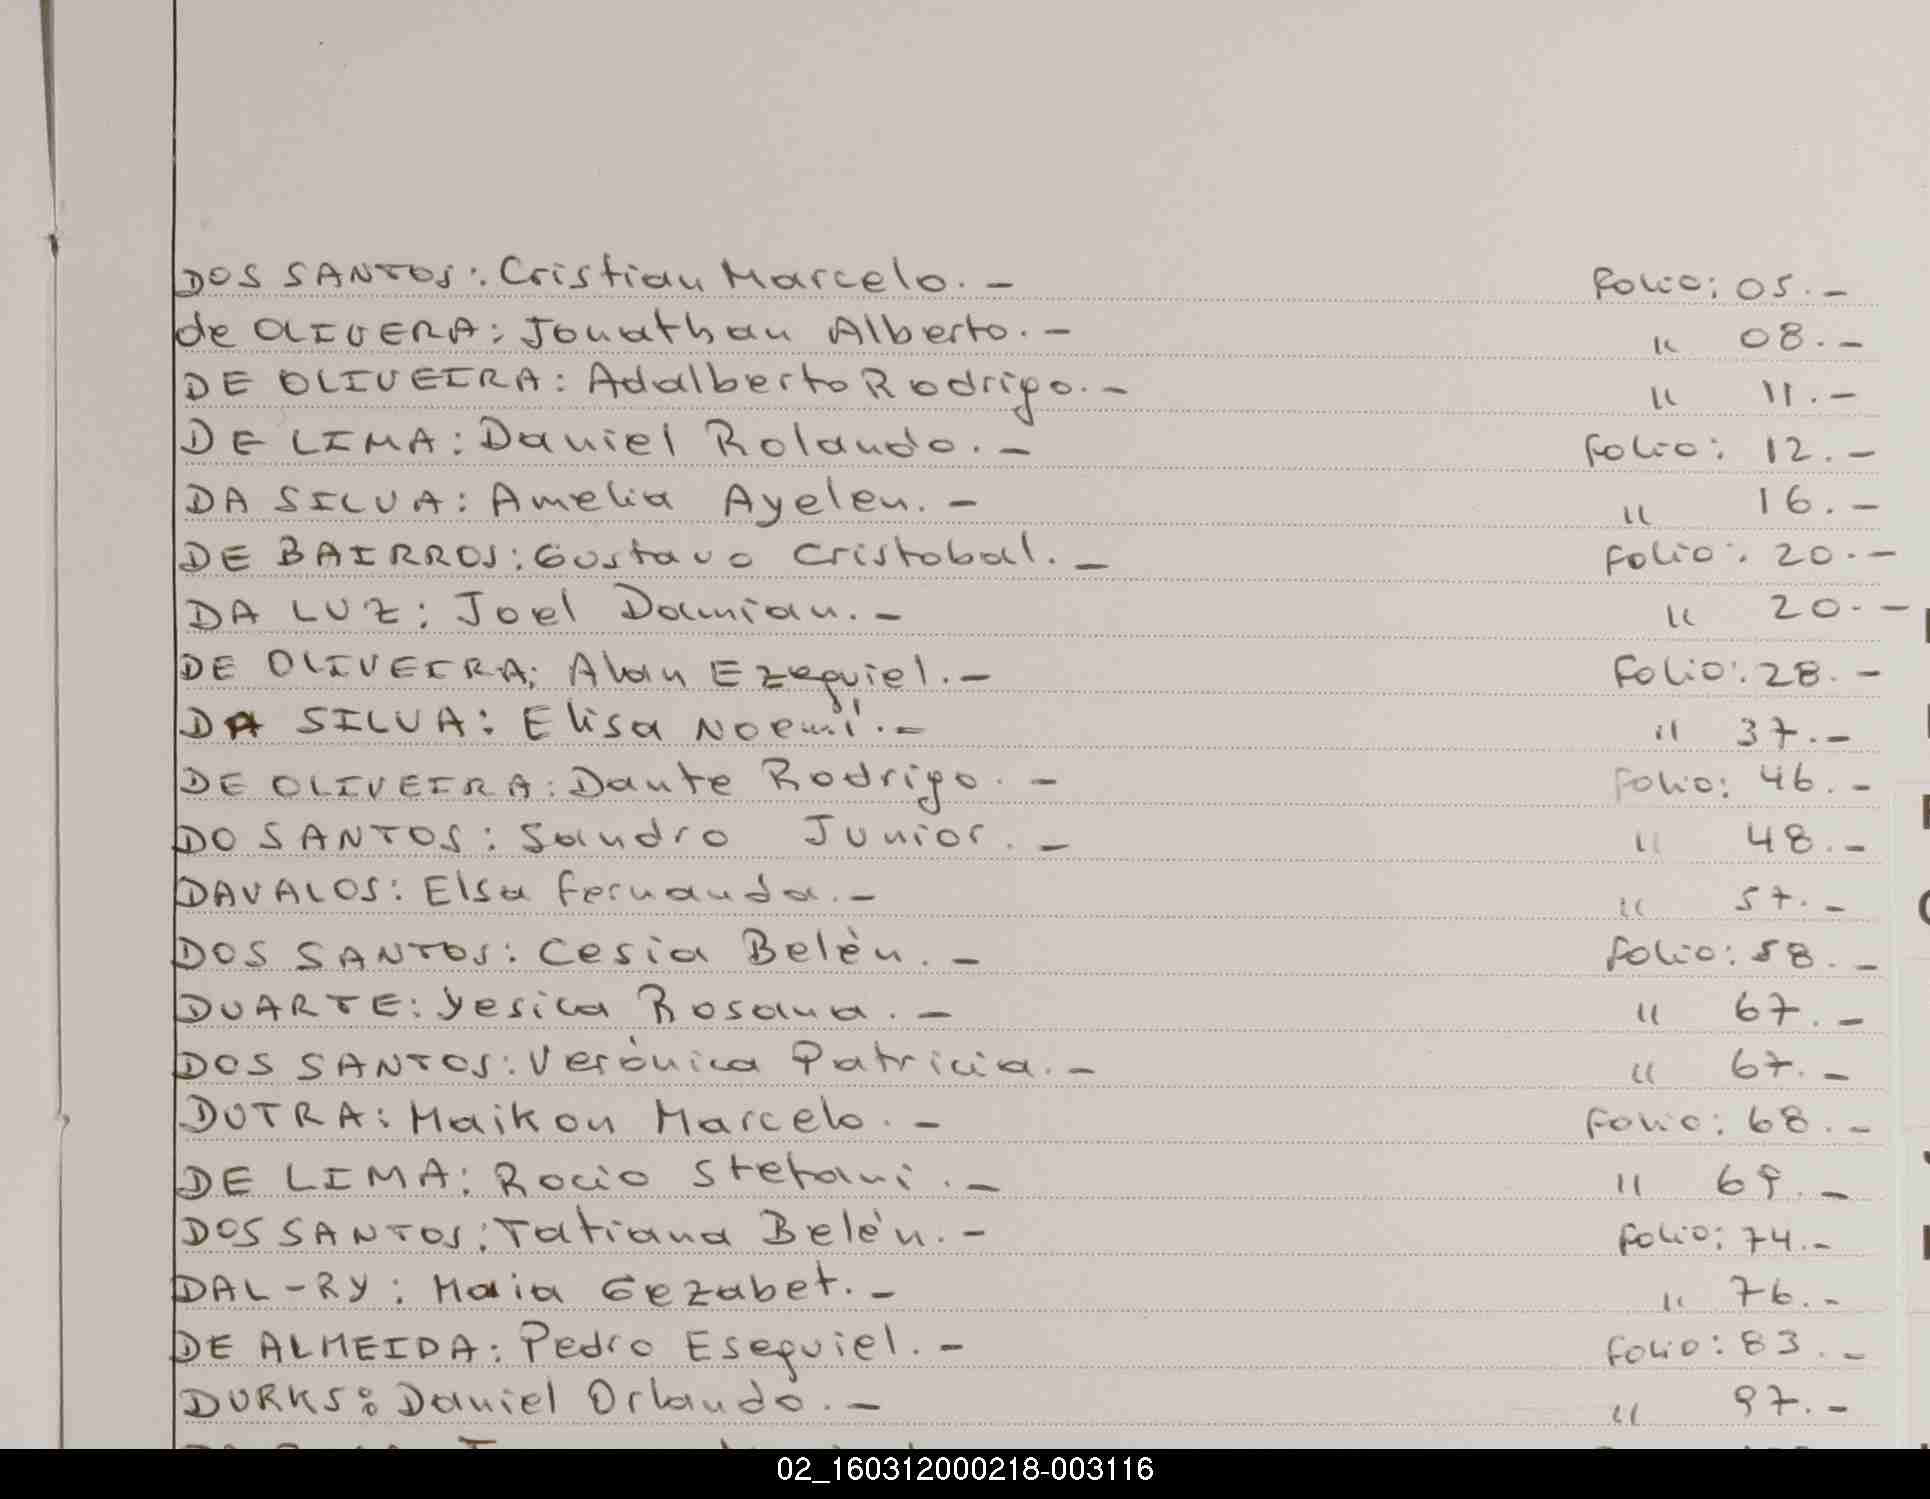 DOS SANTOS: Cristian Marcelo.- Folio: 05.-
de OLIVERA: Jonathan Alberto.- " 08.-
DE OLIVEIRA: Adalberto Rodrigo.- " 11.-
DE LIMA: Daniel Rolando.- Folio: 12.-
DA SILVA: Amelia Ayelen.- " 16.-
DE BAIRROS: Gustavo Cristobal.- Folio: 20.-
DA LUZ: Joel Damian.- " 20.-
DE OLIVEIRA: Alan Ezequiel.- Folio: 28.-
DA SILVA: Elisa Noemí.- " 37.-
DE OLIVEIRA: Dante Rodrigo.- Folio: 46.-
DO SANTOS: Sandro Junior.- " 48.-
DAVALOS: Elsa Fernanda.- " 57.-
DOS SANTOS: Cesia Belèn.- Folio: 58.-
DUARTE: Yesica Rosana.- " 67.-
DOS SANTOS: Verònica Patricia.- " 67.-
DUTRA: Maikon Marcelo.- Folio: 68.-
DE LIMA: Rocio Stefani.- " 69.-
DOS SANTOS: Tatiana Belén.- Folio: 74.-
DAL-RY: Maia Gezabet.- " 76.-
DE ALMEIDA: Pedro Esequiel.- Folio: 83.-
DURKS: Daniel Orlando.- " 97.-
02_160312000218-003116